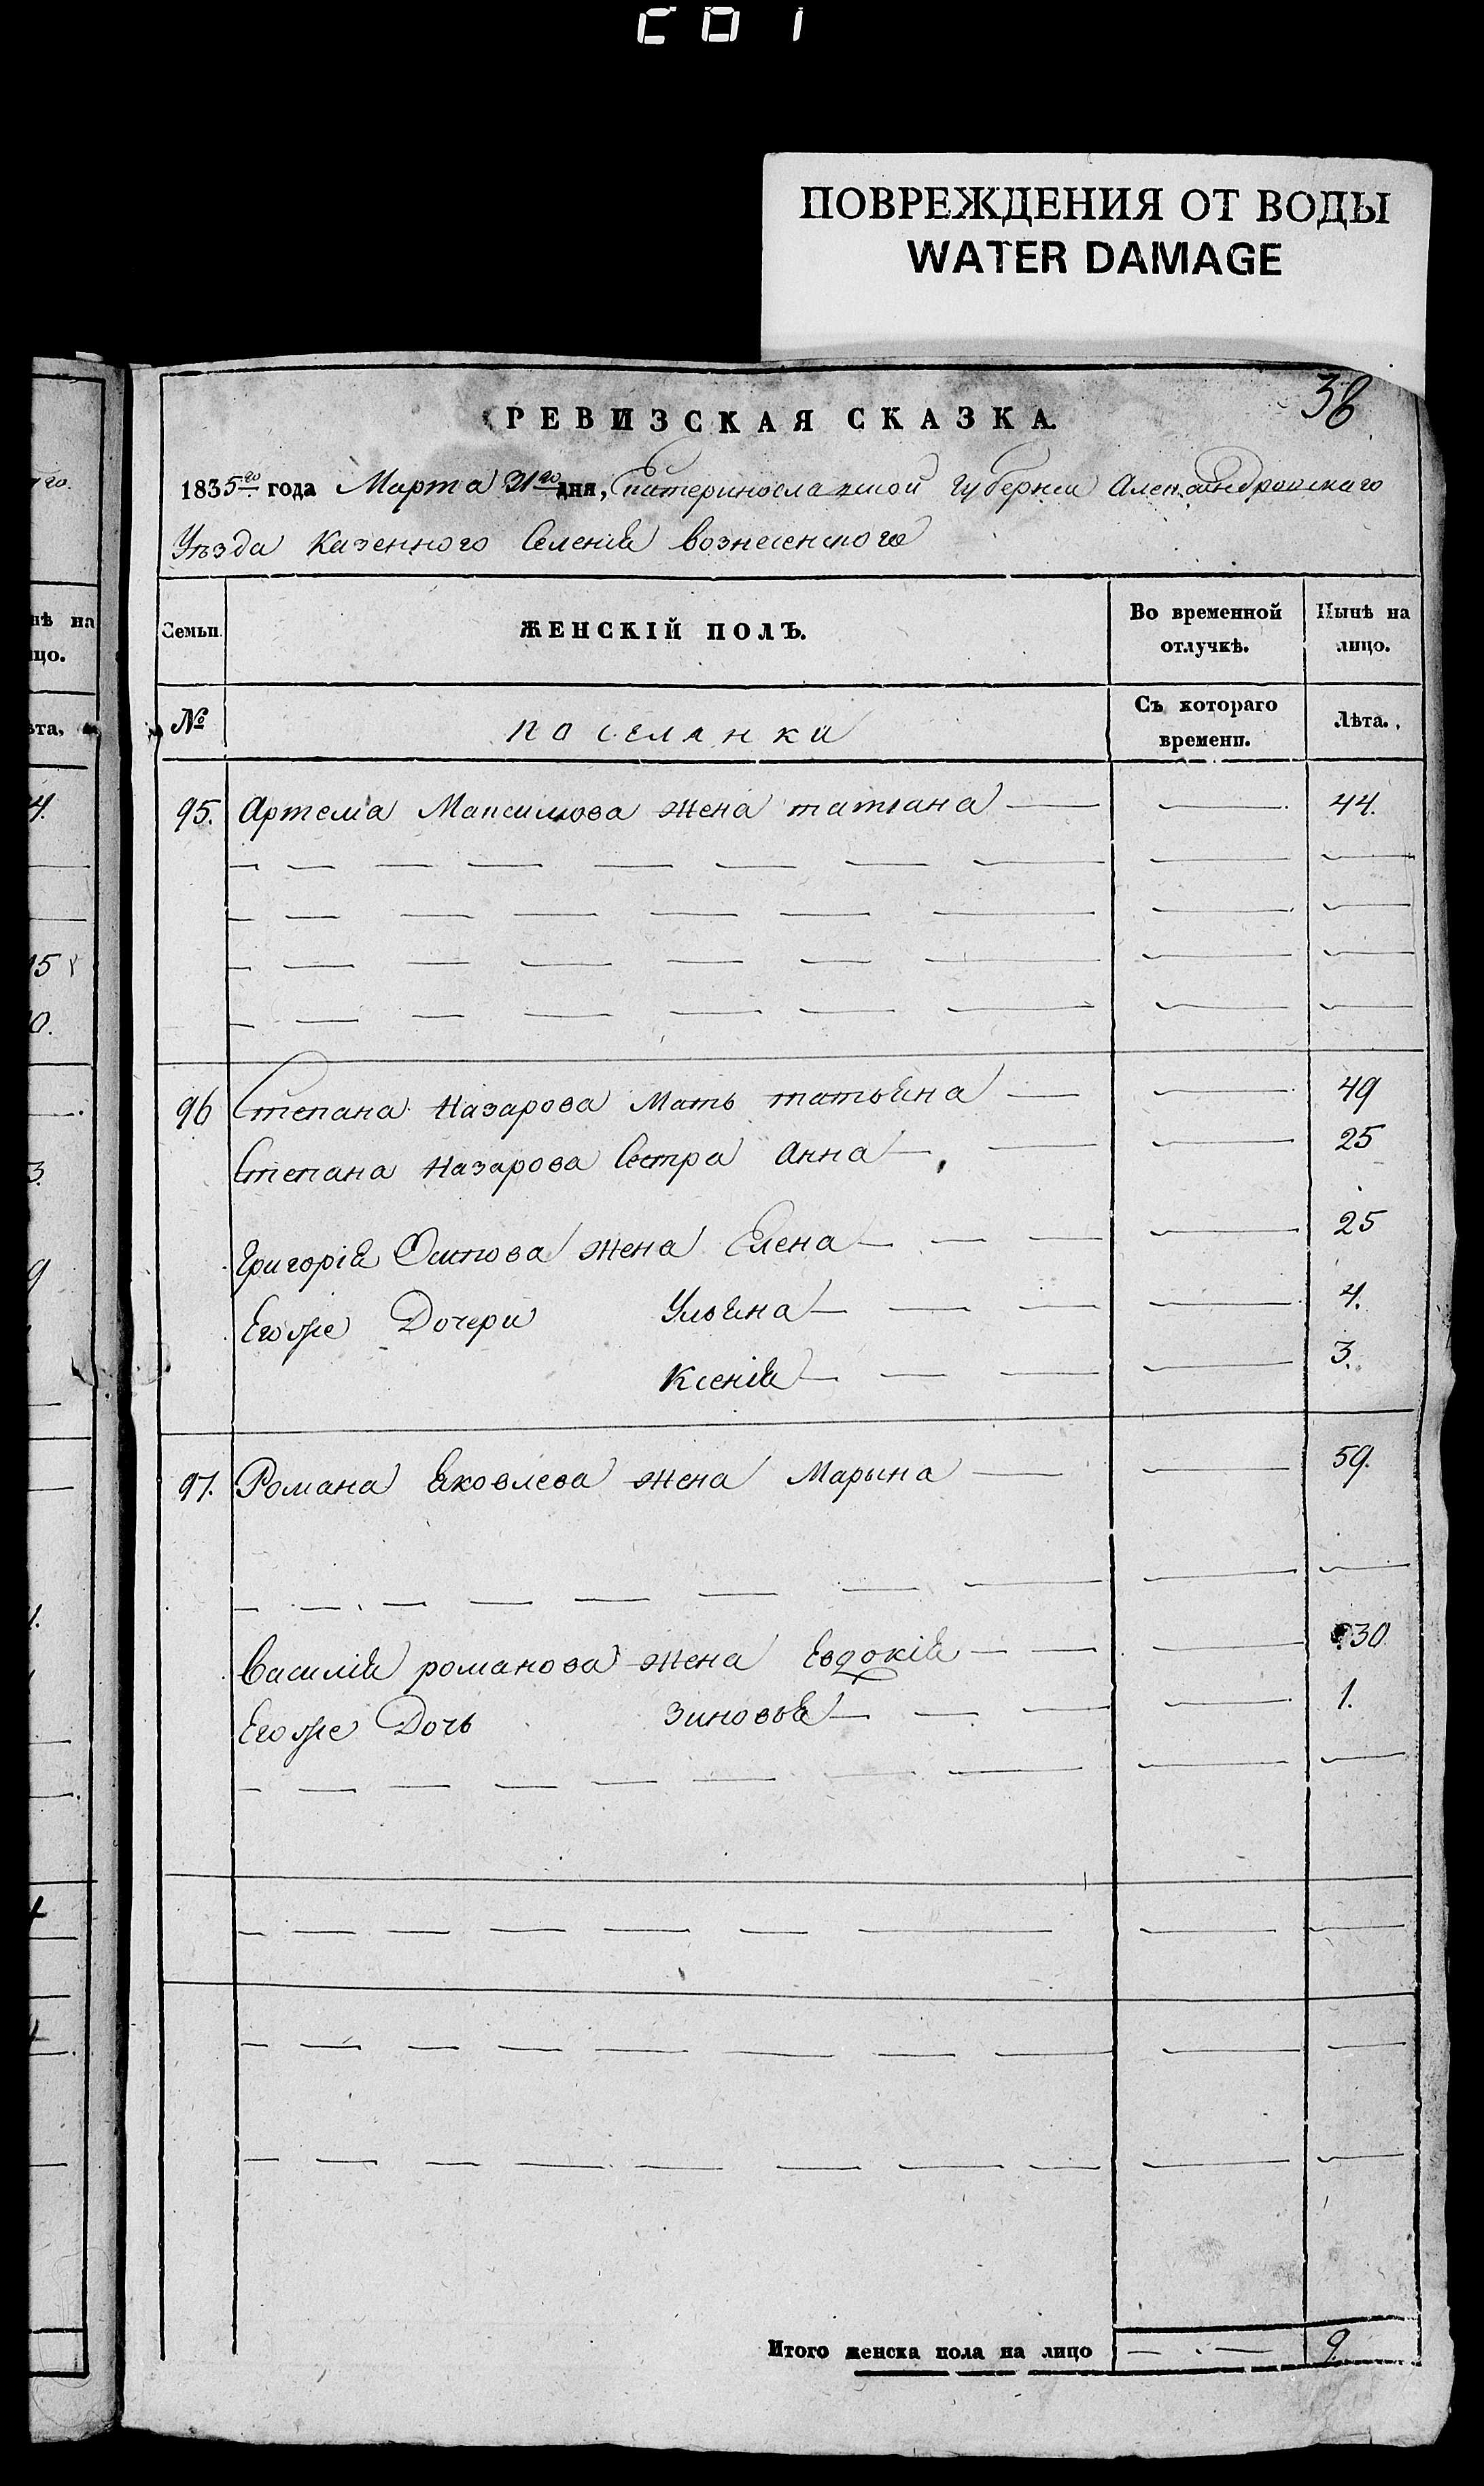 ПОВРЕЖДЕНИЯ ОТ ВОДЫ
WATER DAMAGE
РЕВИЗСКАЯ СКАЗКА.
1835го года Марта 31го дня, Екатеринославской Губернии Александровскаго
Уѣзда Казеннаго Селенія Вознесенскаго
Семьи.
ЖЕНСКІЙ ПОЛЪ.
Во временной отлучкѣ.
Нынѣ на лицо.
№
поселянки
Съ котораго времени.
Лѣта.
95. Артема Максимова жена татіана — — 44.
96 Степана Назарова Мать татьяна — — 49
Степана Назарова Сестра Анна — — 25
Григорія Осипова жена Елена — — 25
Егоже Дочери Ульяна — — 4.
Ксенія — — 3.
97. Романа Яковлева жена Марына — — 59.
Василія романова жена Евдокія — — 30
Егоже Дочь Зиновья — — 1.
Итого женска пола на лицо — 9.